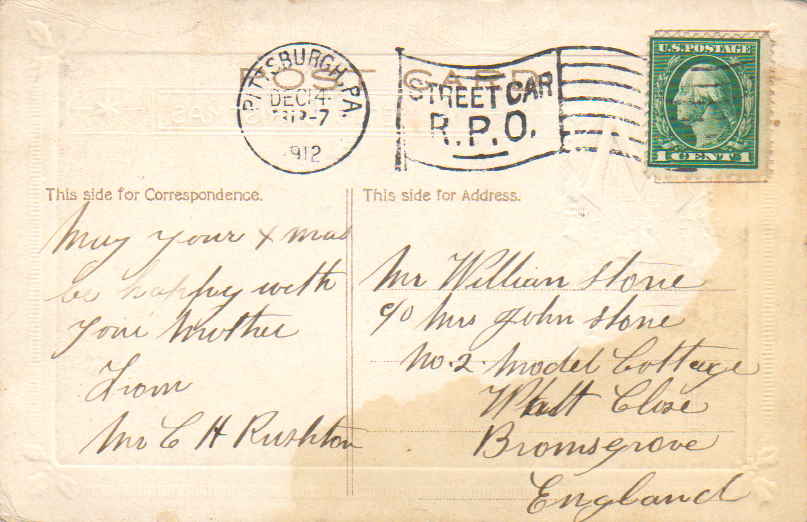 POST CARD
PITTSBURGH, PA.
DEC 14
-7
1912
STREET CAR
R.P.O.
U.S. POSTAGE
1 CENT 1
This side for Correspondence.
May your Xmas
be happy with
your Mother
From
Mr C H Rushton
This side for Address.
Mr William Stone
c/o Mrs John Stone
No. 2. Model Cottage
Close
Bromsgrove
England